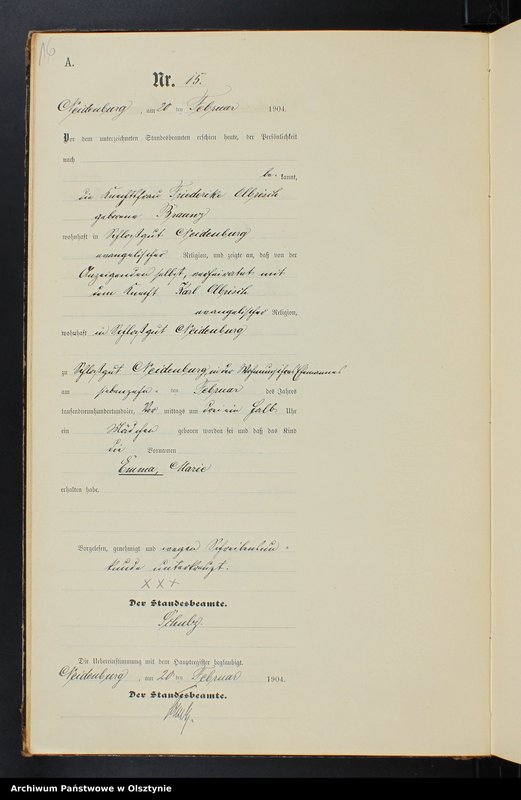 16
A.
Nr. 15.
Neidenburg, am 20 ten Februar 1904.
Vor dem unterzeichneten Standesbeamten erschien heute, der Persönlichkeit
nach
be- kannt,
die Knechtsfrau Friederike Olbrisch
geborene
wohnhaft in Schloßgut Neidenburg
evangelischer Religion, und zeigte an, daß von der
Anzeigenden selbst, verheiratet mit
dem Knecht Karl Olbrisch
evangelischer Religion,
wohnhaft in Schloßgut Neidenburg
zu Schloßgut Neidenburg, in der Wohnung ihres Ehemannes
am siebenzehn- ten Februar des Jahres
tausendneunhundertundvier, Vor mittags um drei ein halb Uhr
ein Mädchen geboren worden sei und daß das Kind
die Vornamen
Emma, Marie
erhalten habe.
Vorgelesen, genehmigt und wegen Schreibensun-
kunde unterkreuzt.
X X +
Der Standesbeamte.
Die Uebereinstimmung mit dem Hauptregister beglaubigt.
Neidenburg, am 20 ten Februar 1904.
Der Standesbeamte.
Archiwum Państwowe w Olsztynie